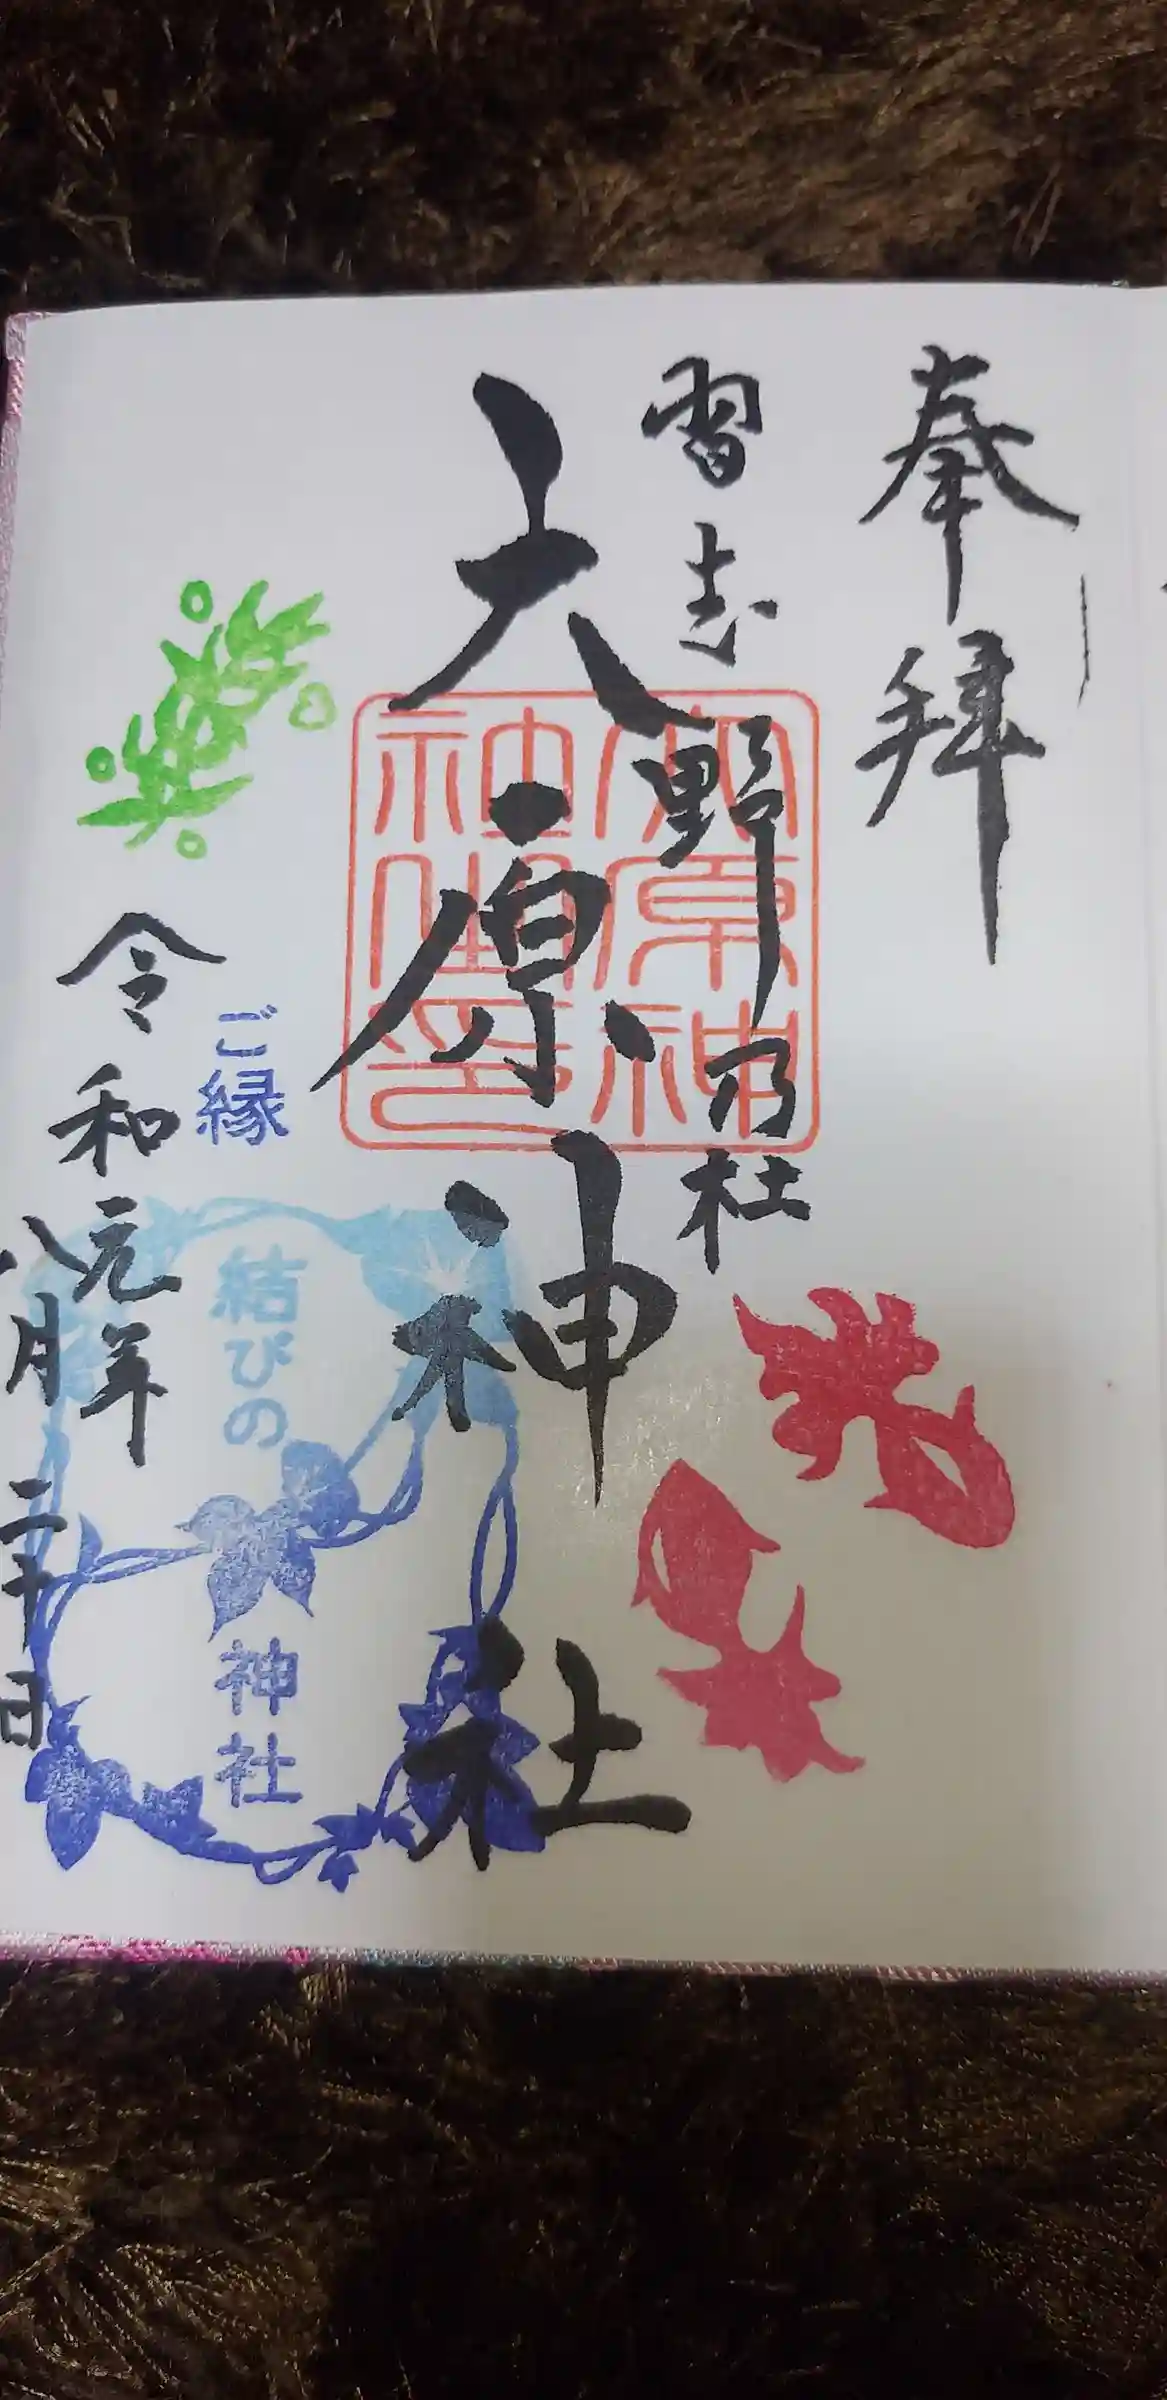 奉拝
習志野乃杜
大原神社
大原神社御印
ご縁
結びの
神社
令和元年
八月二十日